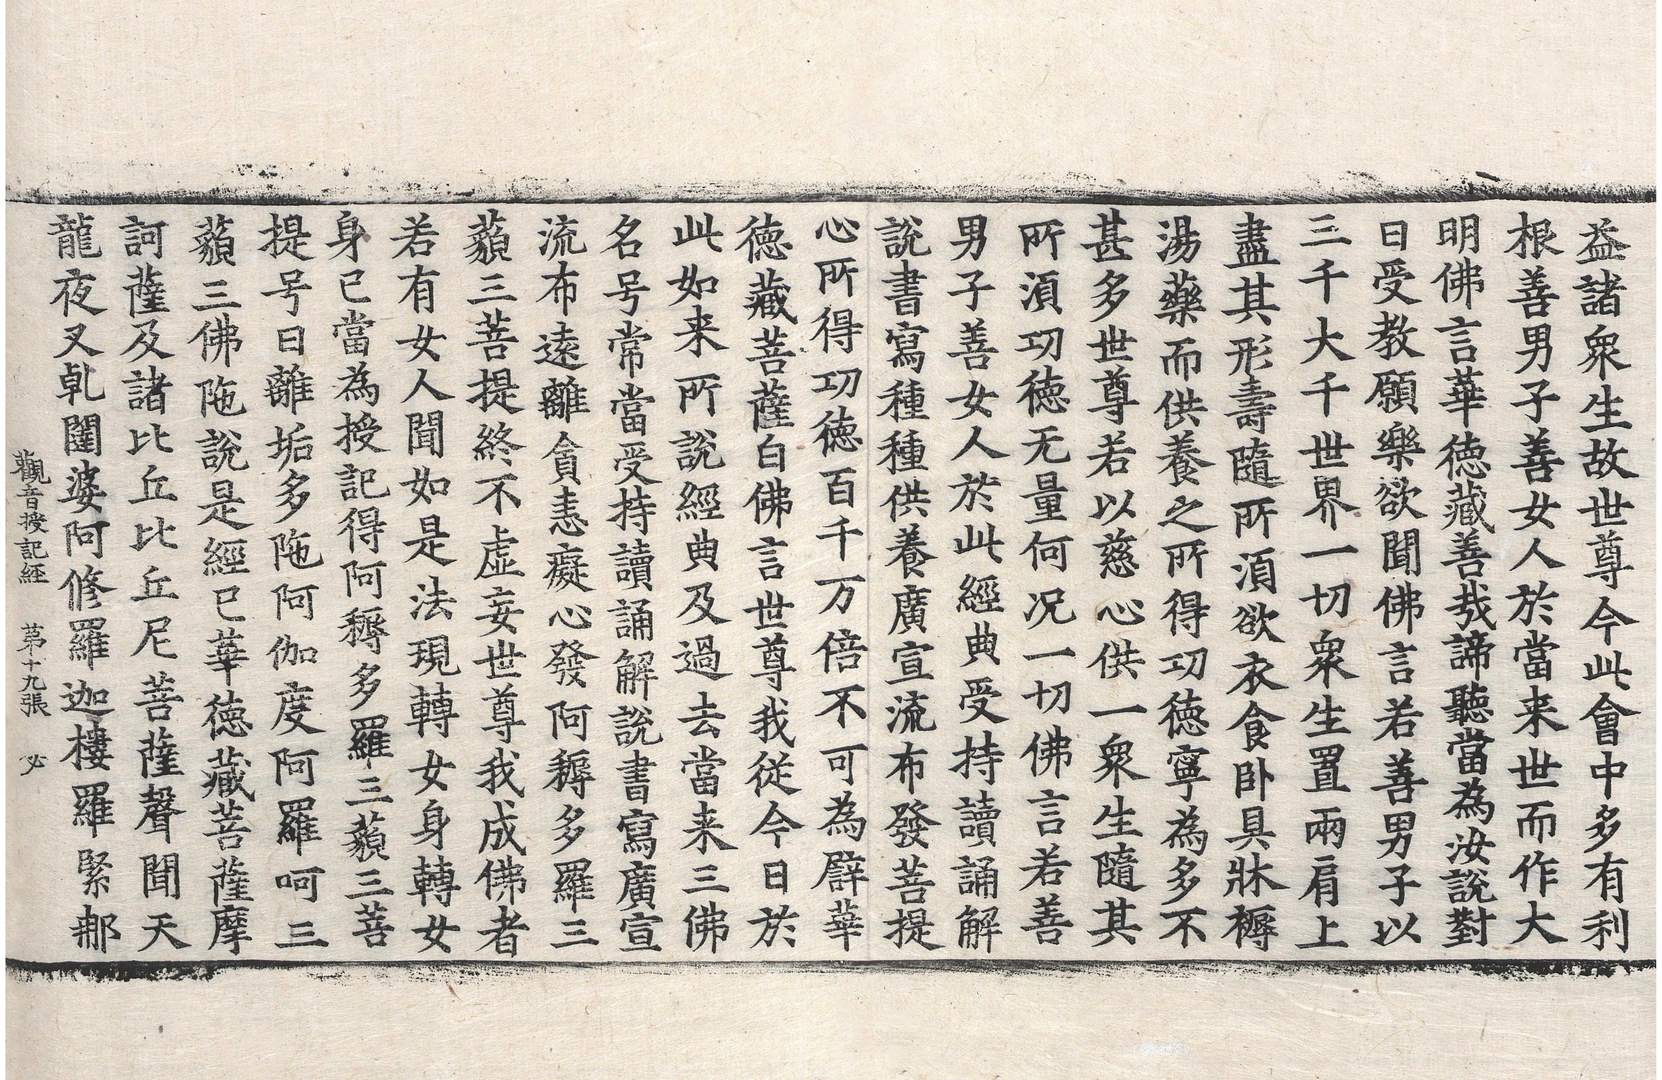 益諸衆生故世尊今此會中多有利
根善男子善女人於當来世而作大
明佛言華德藏善㢤諦聽當為汝說對
曰受教願樂欲聞佛言若善男子以
三千大千世界一切衆生置兩肩上
盡其形壽隨所湏欲衣食卧具牀褥
湯藥而供養之所得功德寧為多不
甚多世尊若以慈心供一衆生隨其
所湏功德无量何况一切佛言若善
男子善女人於此經典受持讀誦解
說書寫種種供養廣宣流布發菩提
心所得功德百千万倍不可為譬華
德藏菩薩白佛言世尊我從今日於
此如来所說經典及過去當来三佛
名号常當受持讀誦解說書寫廣宣
流布遠離貪恚癡心發阿耨多羅三
藐三菩提終不虛妄世尊我成佛者
若有女人聞如是法現轉女身轉女
身已當為授記得阿耨多羅三藐三菩
提号曰離垢多陁阿伽度阿羅呵三
藐三佛陁說是經已華德藏菩薩摩
訶薩及諸比丘比丘尼菩薩聲聞天
龍夜叉乹闥婆阿修羅迦樓羅緊那
觀音授記經 苐十九張 必